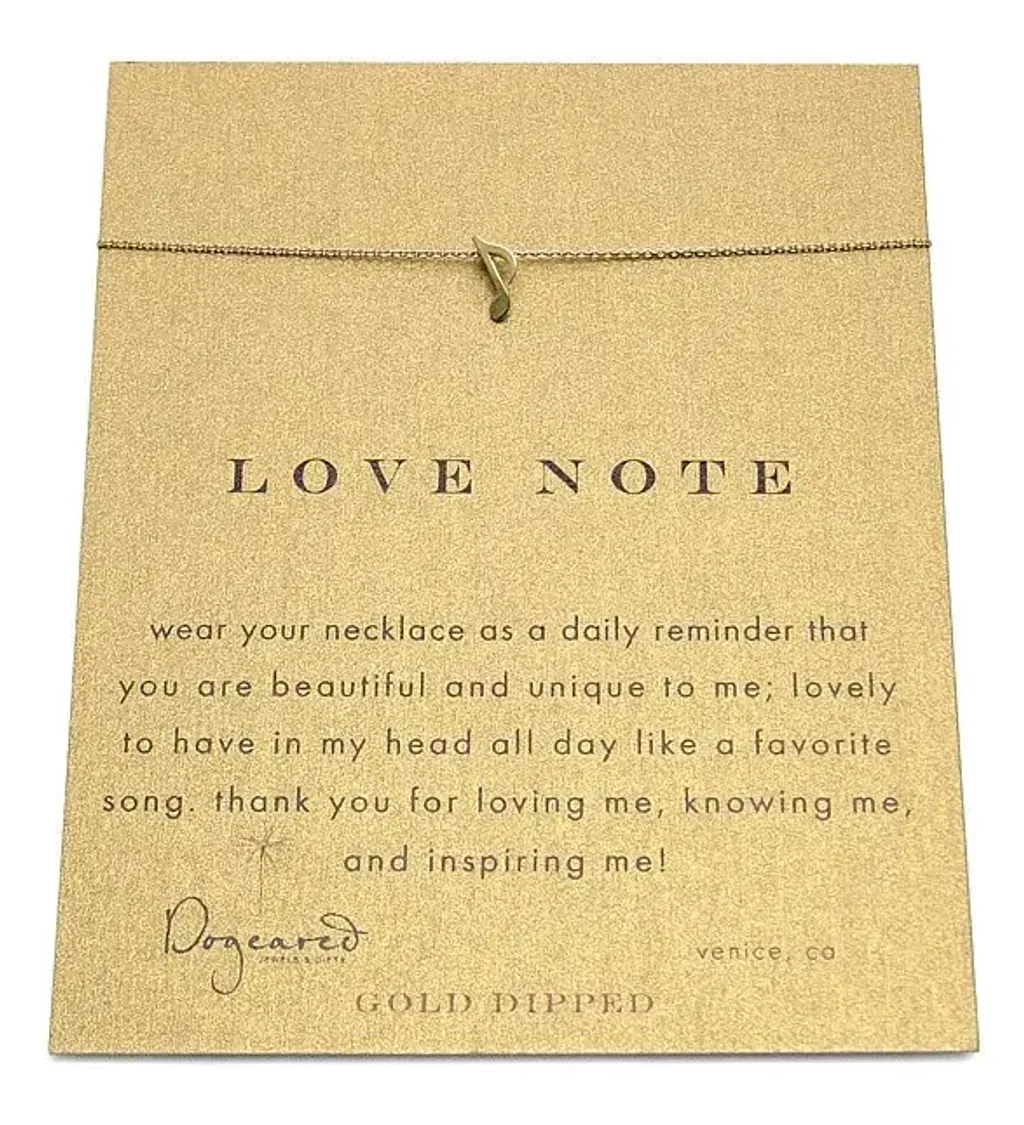 LOVE NOTE
wear your necklace as a daily reminder that
you are beautiful and unique to me; lovely
to have in my head all day like a favorite
song. thank you for loving me, knowing me,
and inspiring me!
Dogeared
JEWELS & GIFTS
venice, ca
GOLD DIPPED